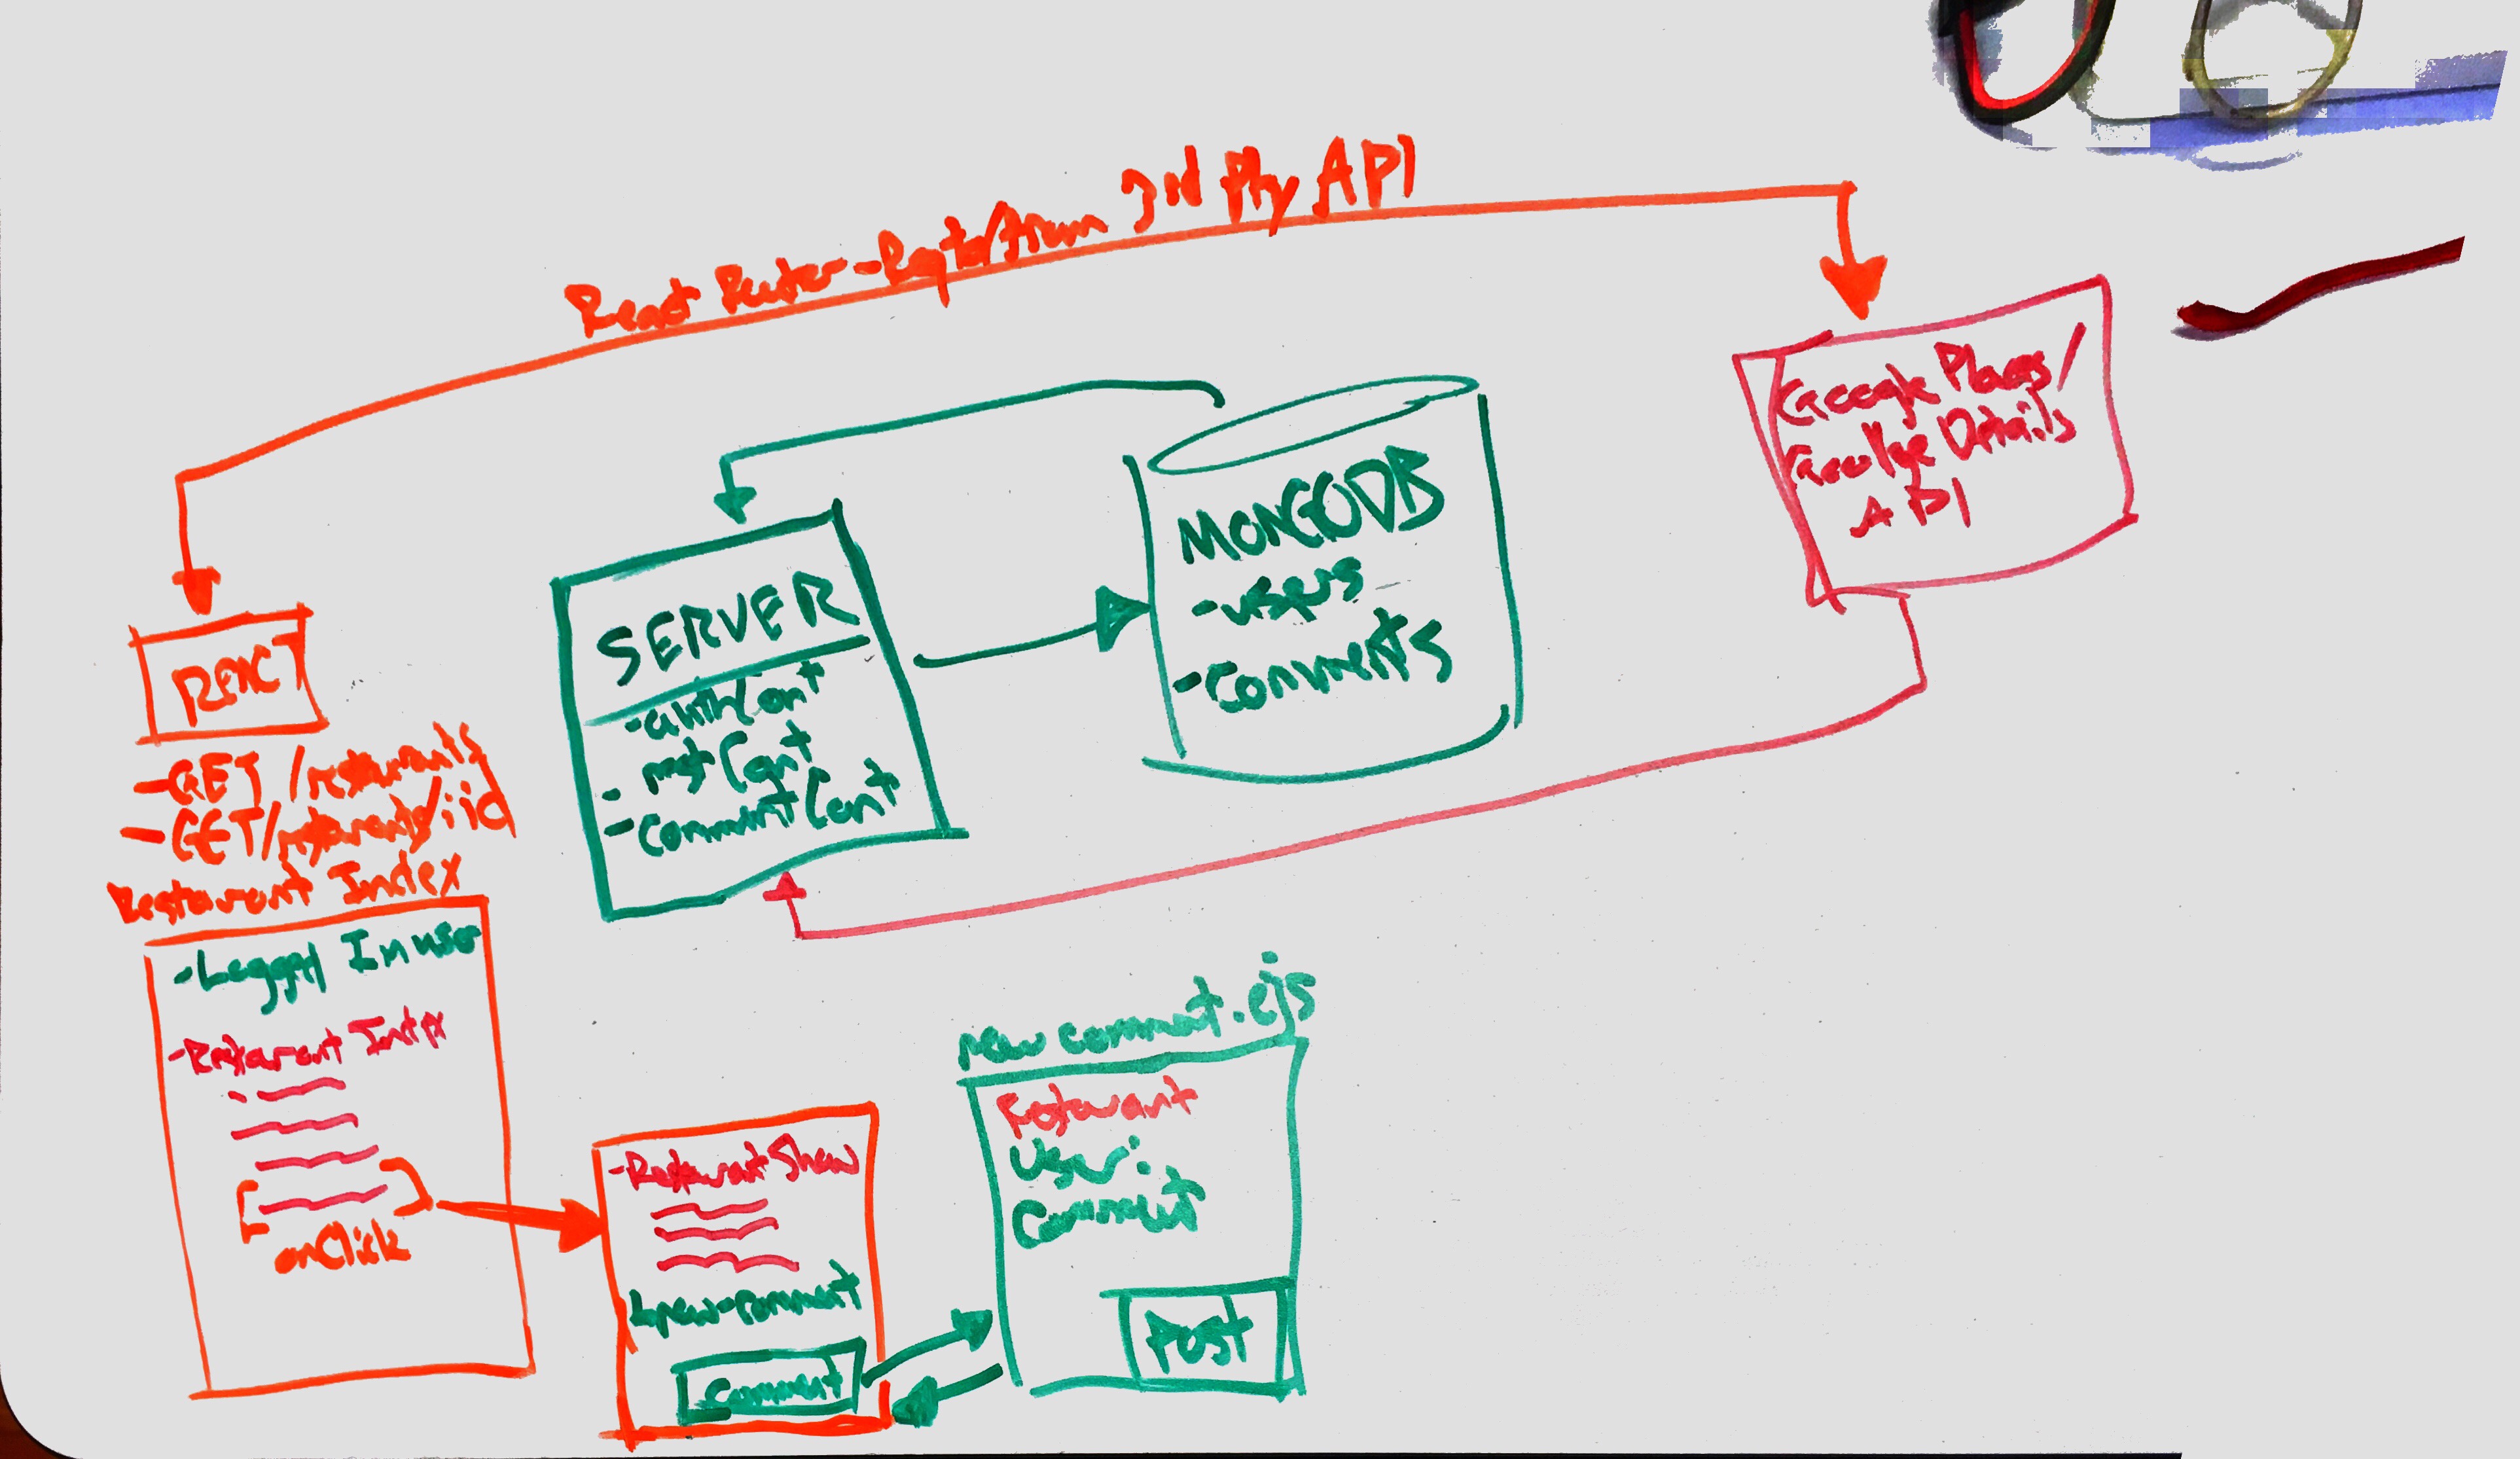 React Router - Rq to/from 3rd Pty API
Google Places/
Google Details
API
MONGODB
- users
- Comments
SERVER
- authCont
- rest Cont
- comment Cont
REACT
- GET /restaurants
- GET /restaurants/:id
Restaurant Index
- Logged In user
- Restaurant Index
onClick
- Restaurant Show
new comment
Comment
new comment.ejs
Restaurant
User:
Comment
Post